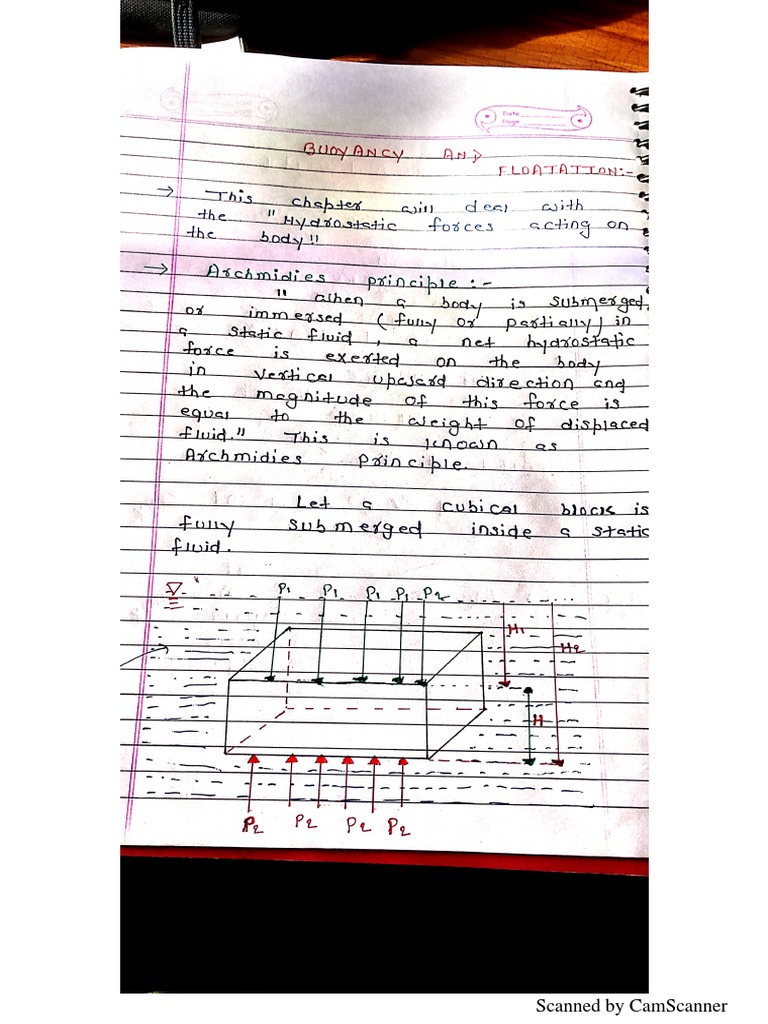 Date
Page
BUOYANCY AND
FLOATATION:-
→ This chapter will deal with
the "Hydrostatic forces acting on
the body"
→ Archmidies principle :-
" when a body is submerged
or immersed (fully or partially) in
a static fluid, a net hydrostatic
force is exerted on the body
in vertical upward direction and
the magnitude of this force is
equal to the weight of displaced
fluid." This is known as
Archmidies principle.
Let a cubical block is
fully submerged inside a static
fluid.
P1 P1 P1 P1 P2
H1
H2
H
P2 P2 P2 P2
Scanned by CamScanner